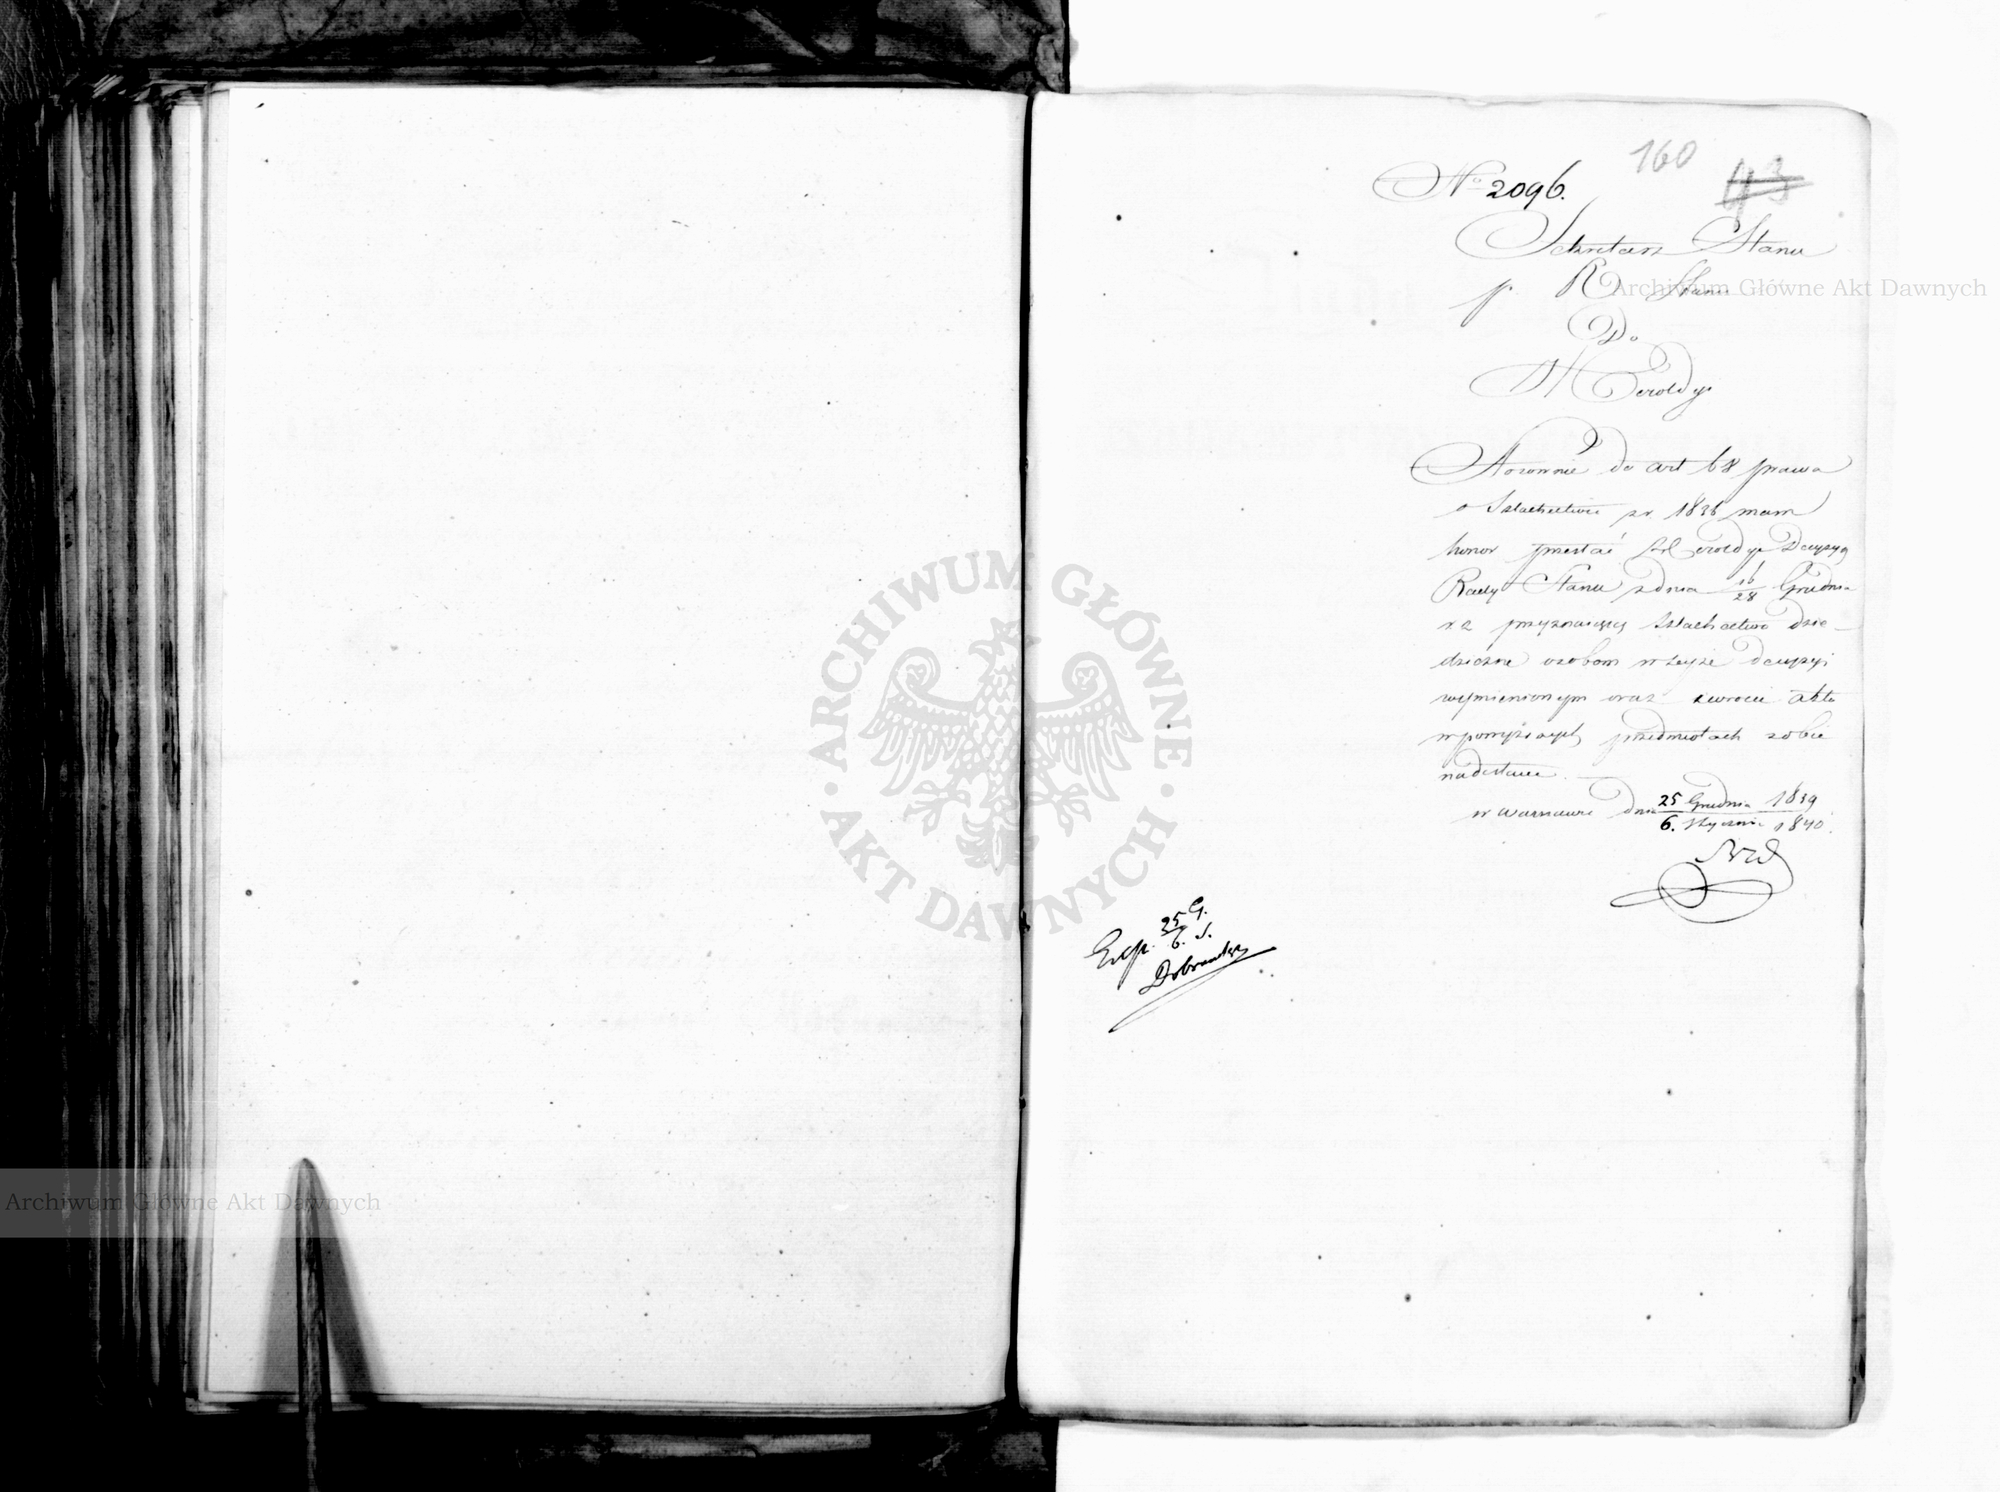 160
43
No 2096.
Sekretarz Stanu
p R Stanu
Do
Heroldyi
Stosownie do art 68 prawa
o Szlachectwie z r. 1836 mam
honor przesłać Heroldyi Decyzyą
Rady Stanu z dnia 16/28 Grudnia
przyznającą Szlachectwo dzie-
dziczne osobom w tejże decyzyi
wymienionym oraz zwrócić akta
w powyższych przedmiotach sobie
nadesłane.
w Warszawie dnia 25 Grudnia 1839
6. Stycznia 1840.
Exp. 25 G.
6. S.
Archiwum Główne Akt Dawnych
ARCHIWUM GŁÓWNE
AKT DAWNYCH
Archiwum Główne Akt Dawnych